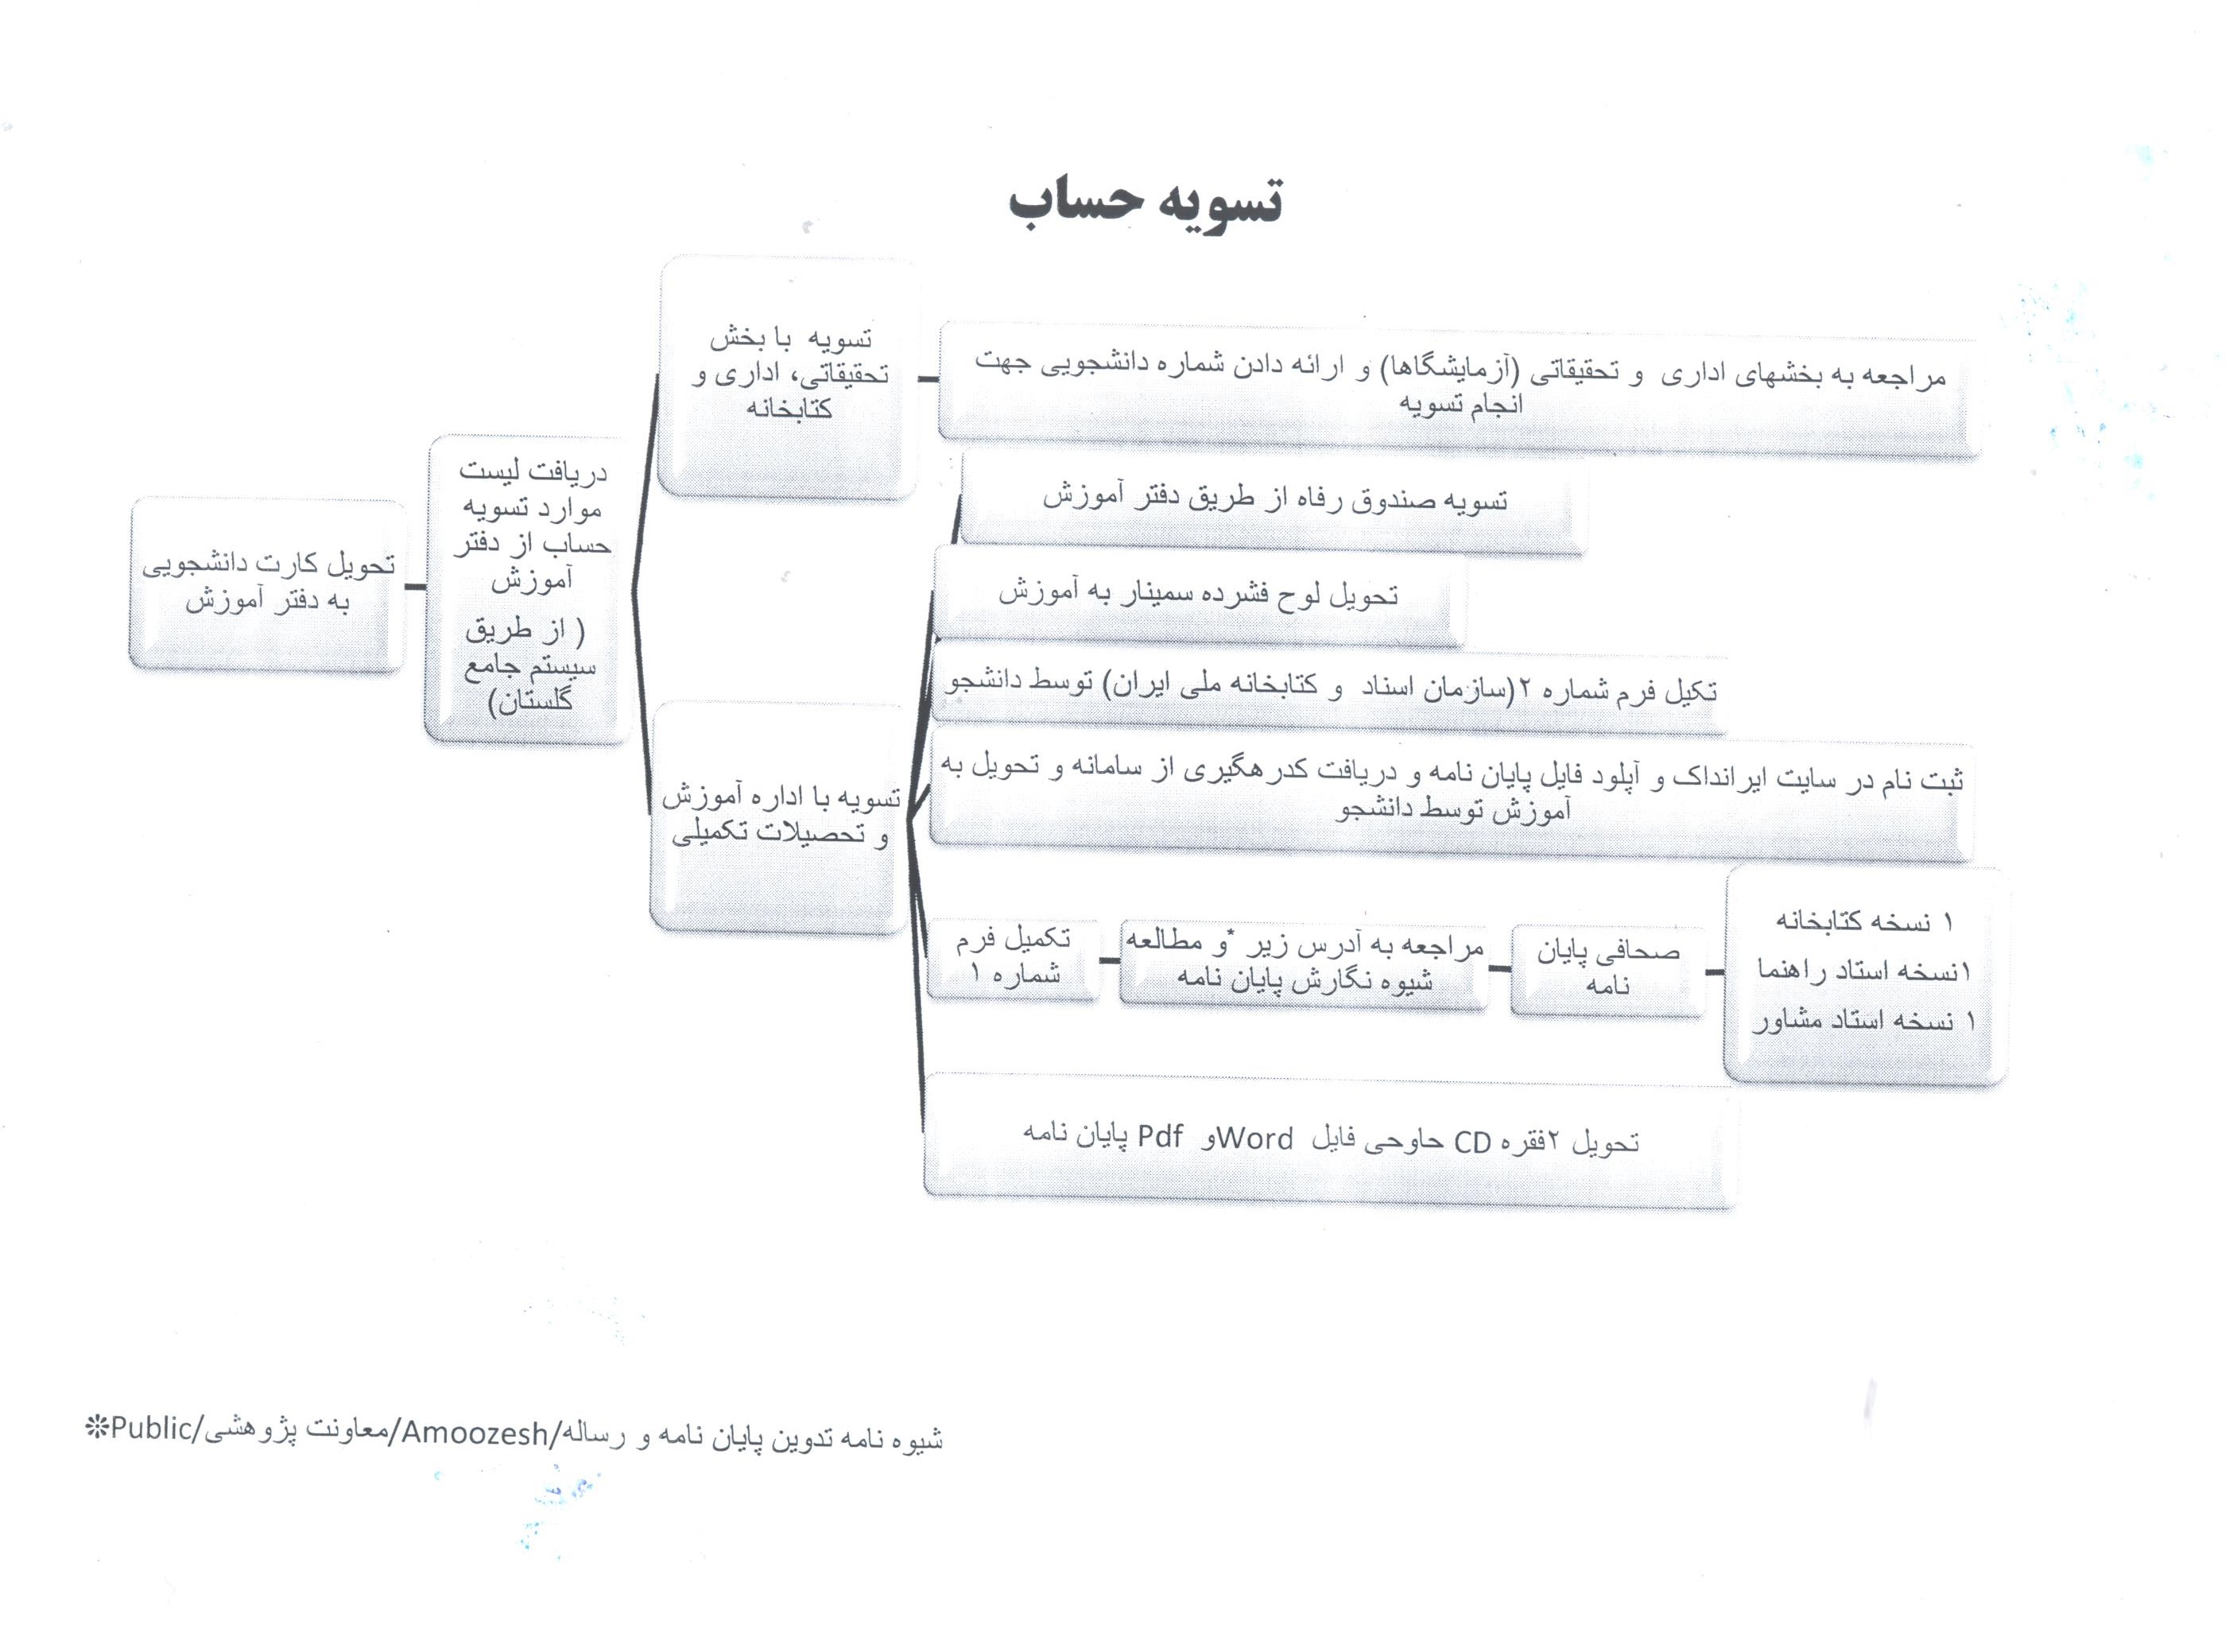 تسویه حساب
تحویل کارت دانشجویی
به دفتر آموزش
دریافت لیست
موارد تسویه
حساب از دفتر
آموزش
( از طریق
سیستم جامع
گلستان)
تسویه با بخش
تحقیقاتی، اداری و
کتابخانه
مراجعه به بخشهای اداری و تحقیقاتی (آزمایشگاها) و ارائه دادن شماره دانشجویی جهت
انجام تسویه
تسویه با اداره آموزش
و تحصیلات تکمیلی
تسویه صندوق رفاه از طریق دفتر آموزش
تحویل لوح فشرده سمینار به آموزش
تکیل فرم شماره ۲(سازمان اسناد و کتابخانه ملی ایران) توسط دانشجو
ثبت نام در سایت ایرانداک و آپلود فایل پایان نامه و دریافت کدرهگیری از سامانه و تحویل به
آموزش توسط دانشجو
تکمیل فرم
شماره ۱
مراجعه به آدرس زیر *و مطالعه
شیوه نگارش پایان نامه
صحافی پایان
نامه
۱ نسخه کتابخانه
۱نسخه استاد راهنما
۱ نسخه استاد مشاور
تحویل ۲فقره CD حاوحی فایل Wordو Pdf پایان نامه
❊Public/معاونت پژوهشی/Amoozesh/شیوه نامه تدوین پایان نامه و رساله